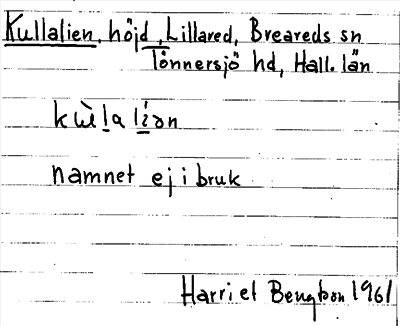 Kullalien, höjd, Lillared, Breareds sn
Tönnersjö hd, Hall. län
kùlalían
namnet ej i bruk
Harriet Bengtson 1961